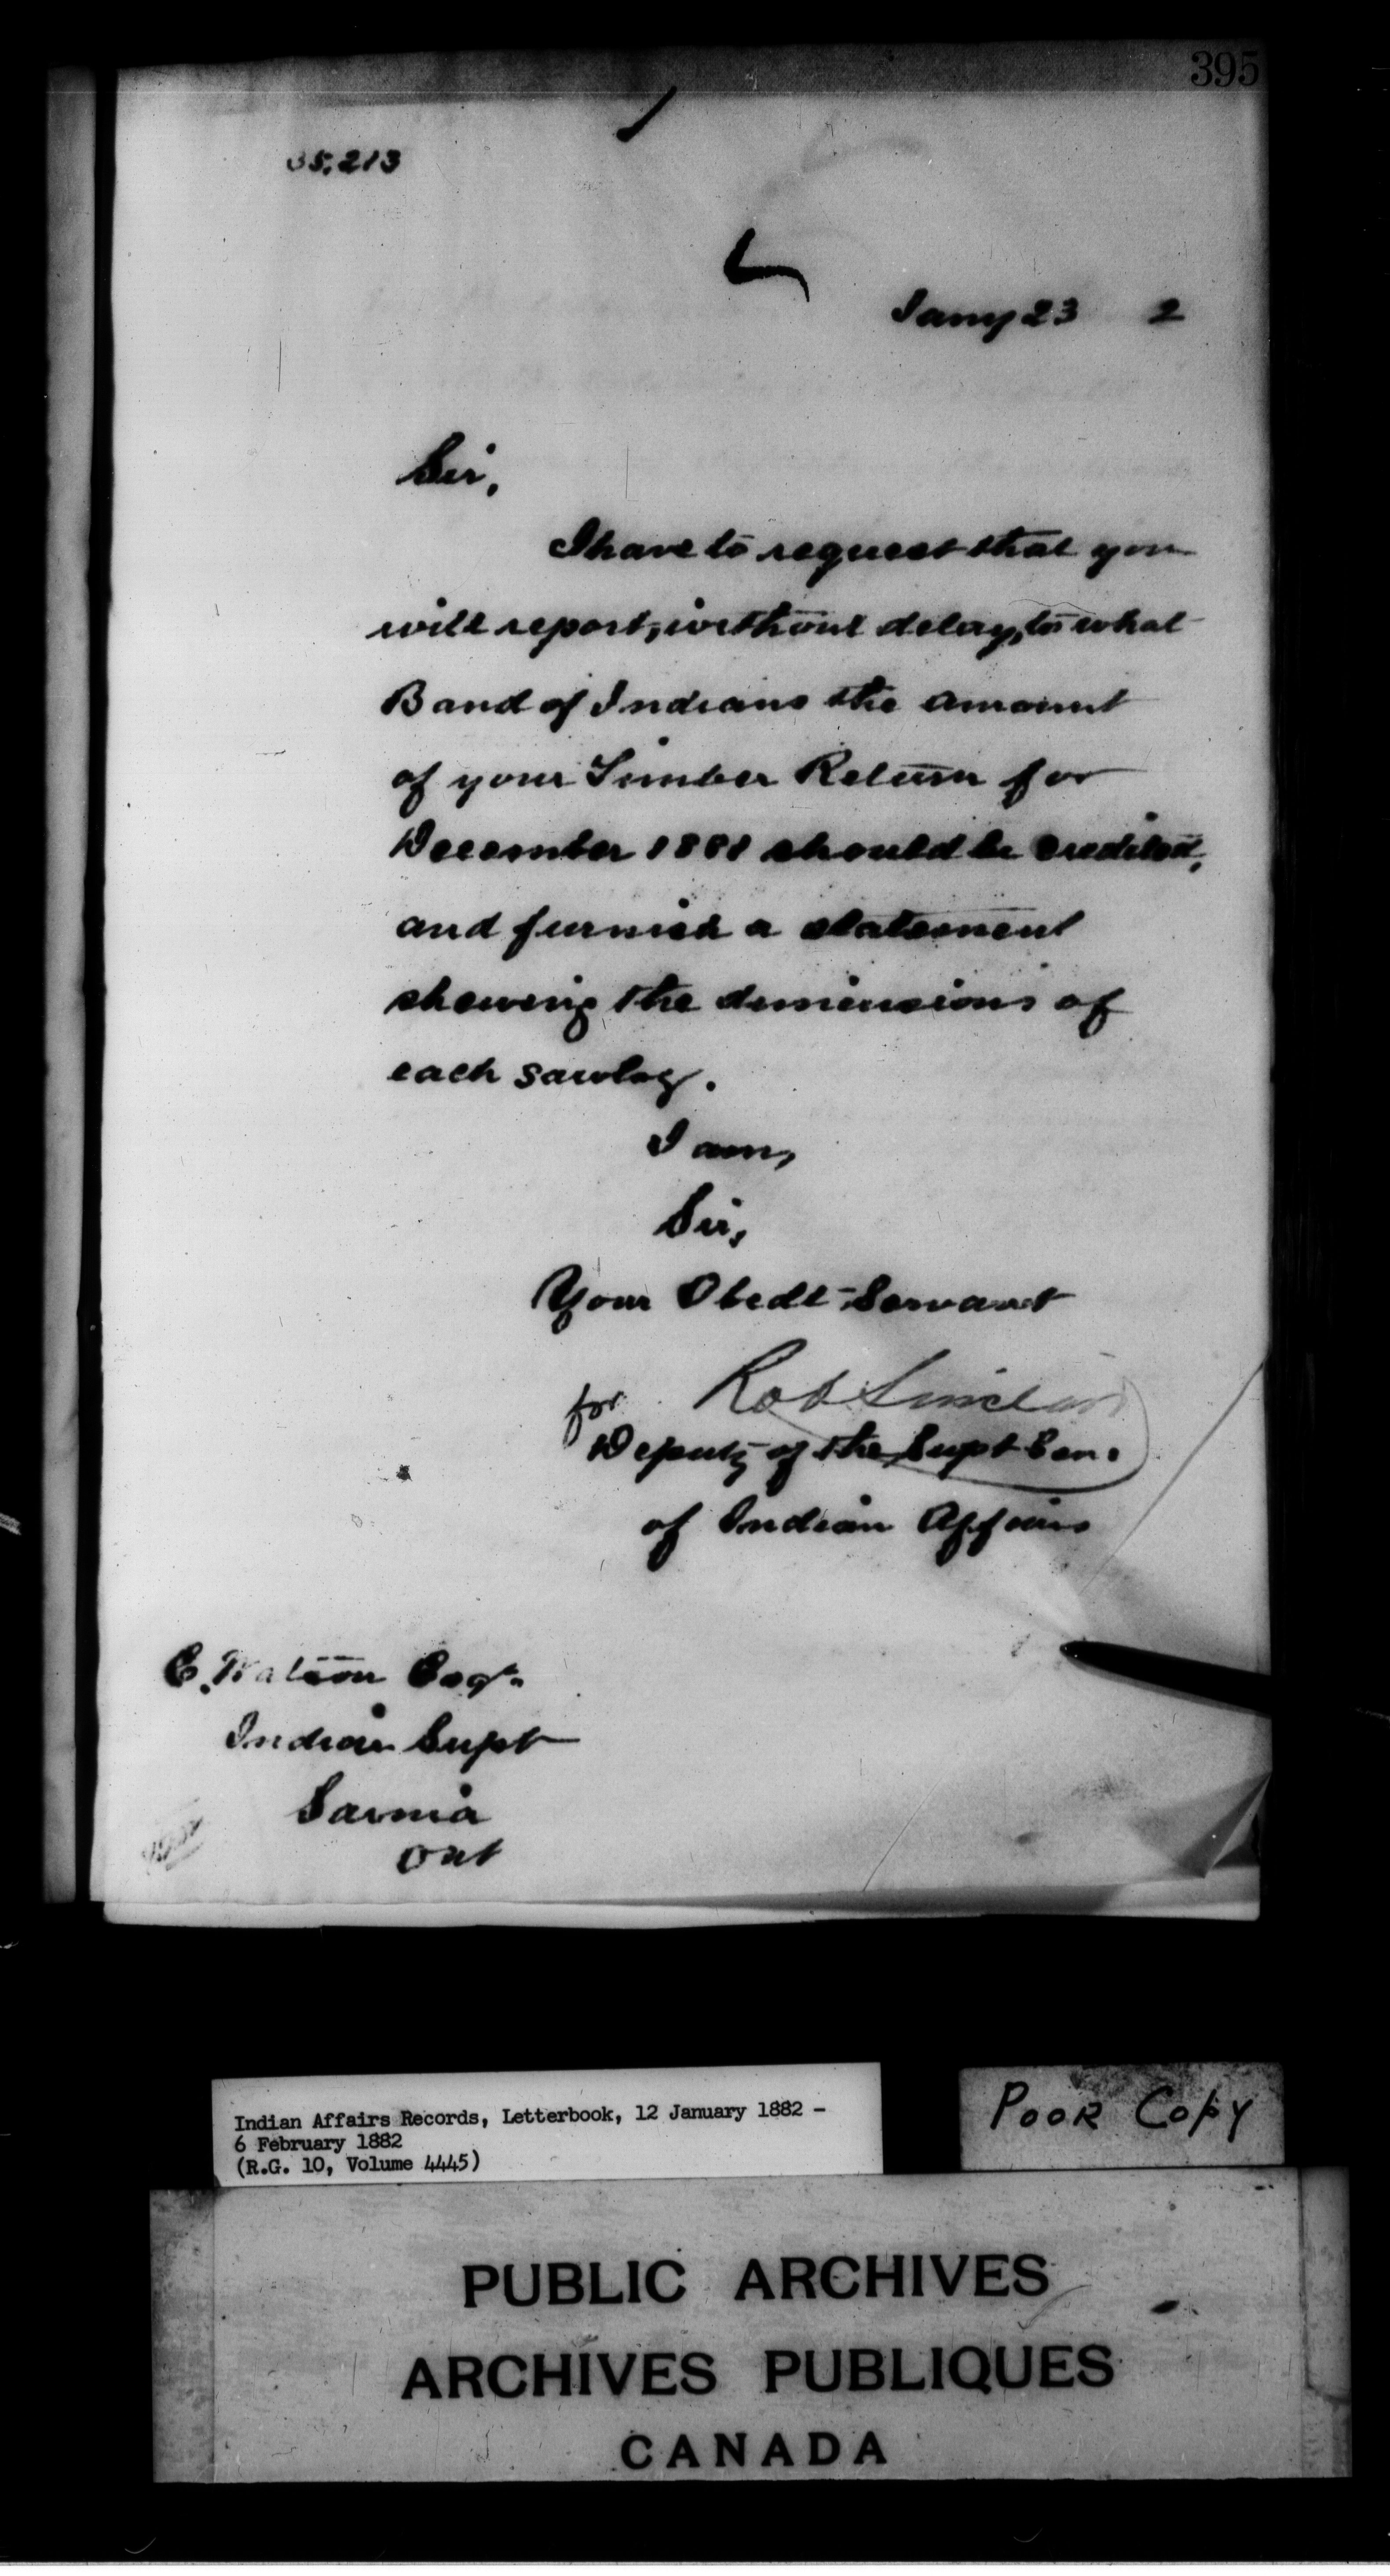 395
35,213
Jany 23 2
Sir,
I have to request that you
will report, without delay, to what
Band of Indians the amount
of your Timber Return for
December 1881 should be credited,
and furnish a statement
shewing the dimensions of
each sawlog.
I am,
Sir,
Your Obedt Servant
for Robt Sinclair
Deputy of the Supt Gen.
of Indian Affairs
E. Watson Esqr.
Indian Supt
Sarnia
Ont
Indian Affairs Records, Letterbook, 12 January 1882 -
6 February 1882
(R.G. 10, Volume 4445)
POOR COPY
PUBLIC ARCHIVES
ARCHIVES PUBLIQUES
CANADA